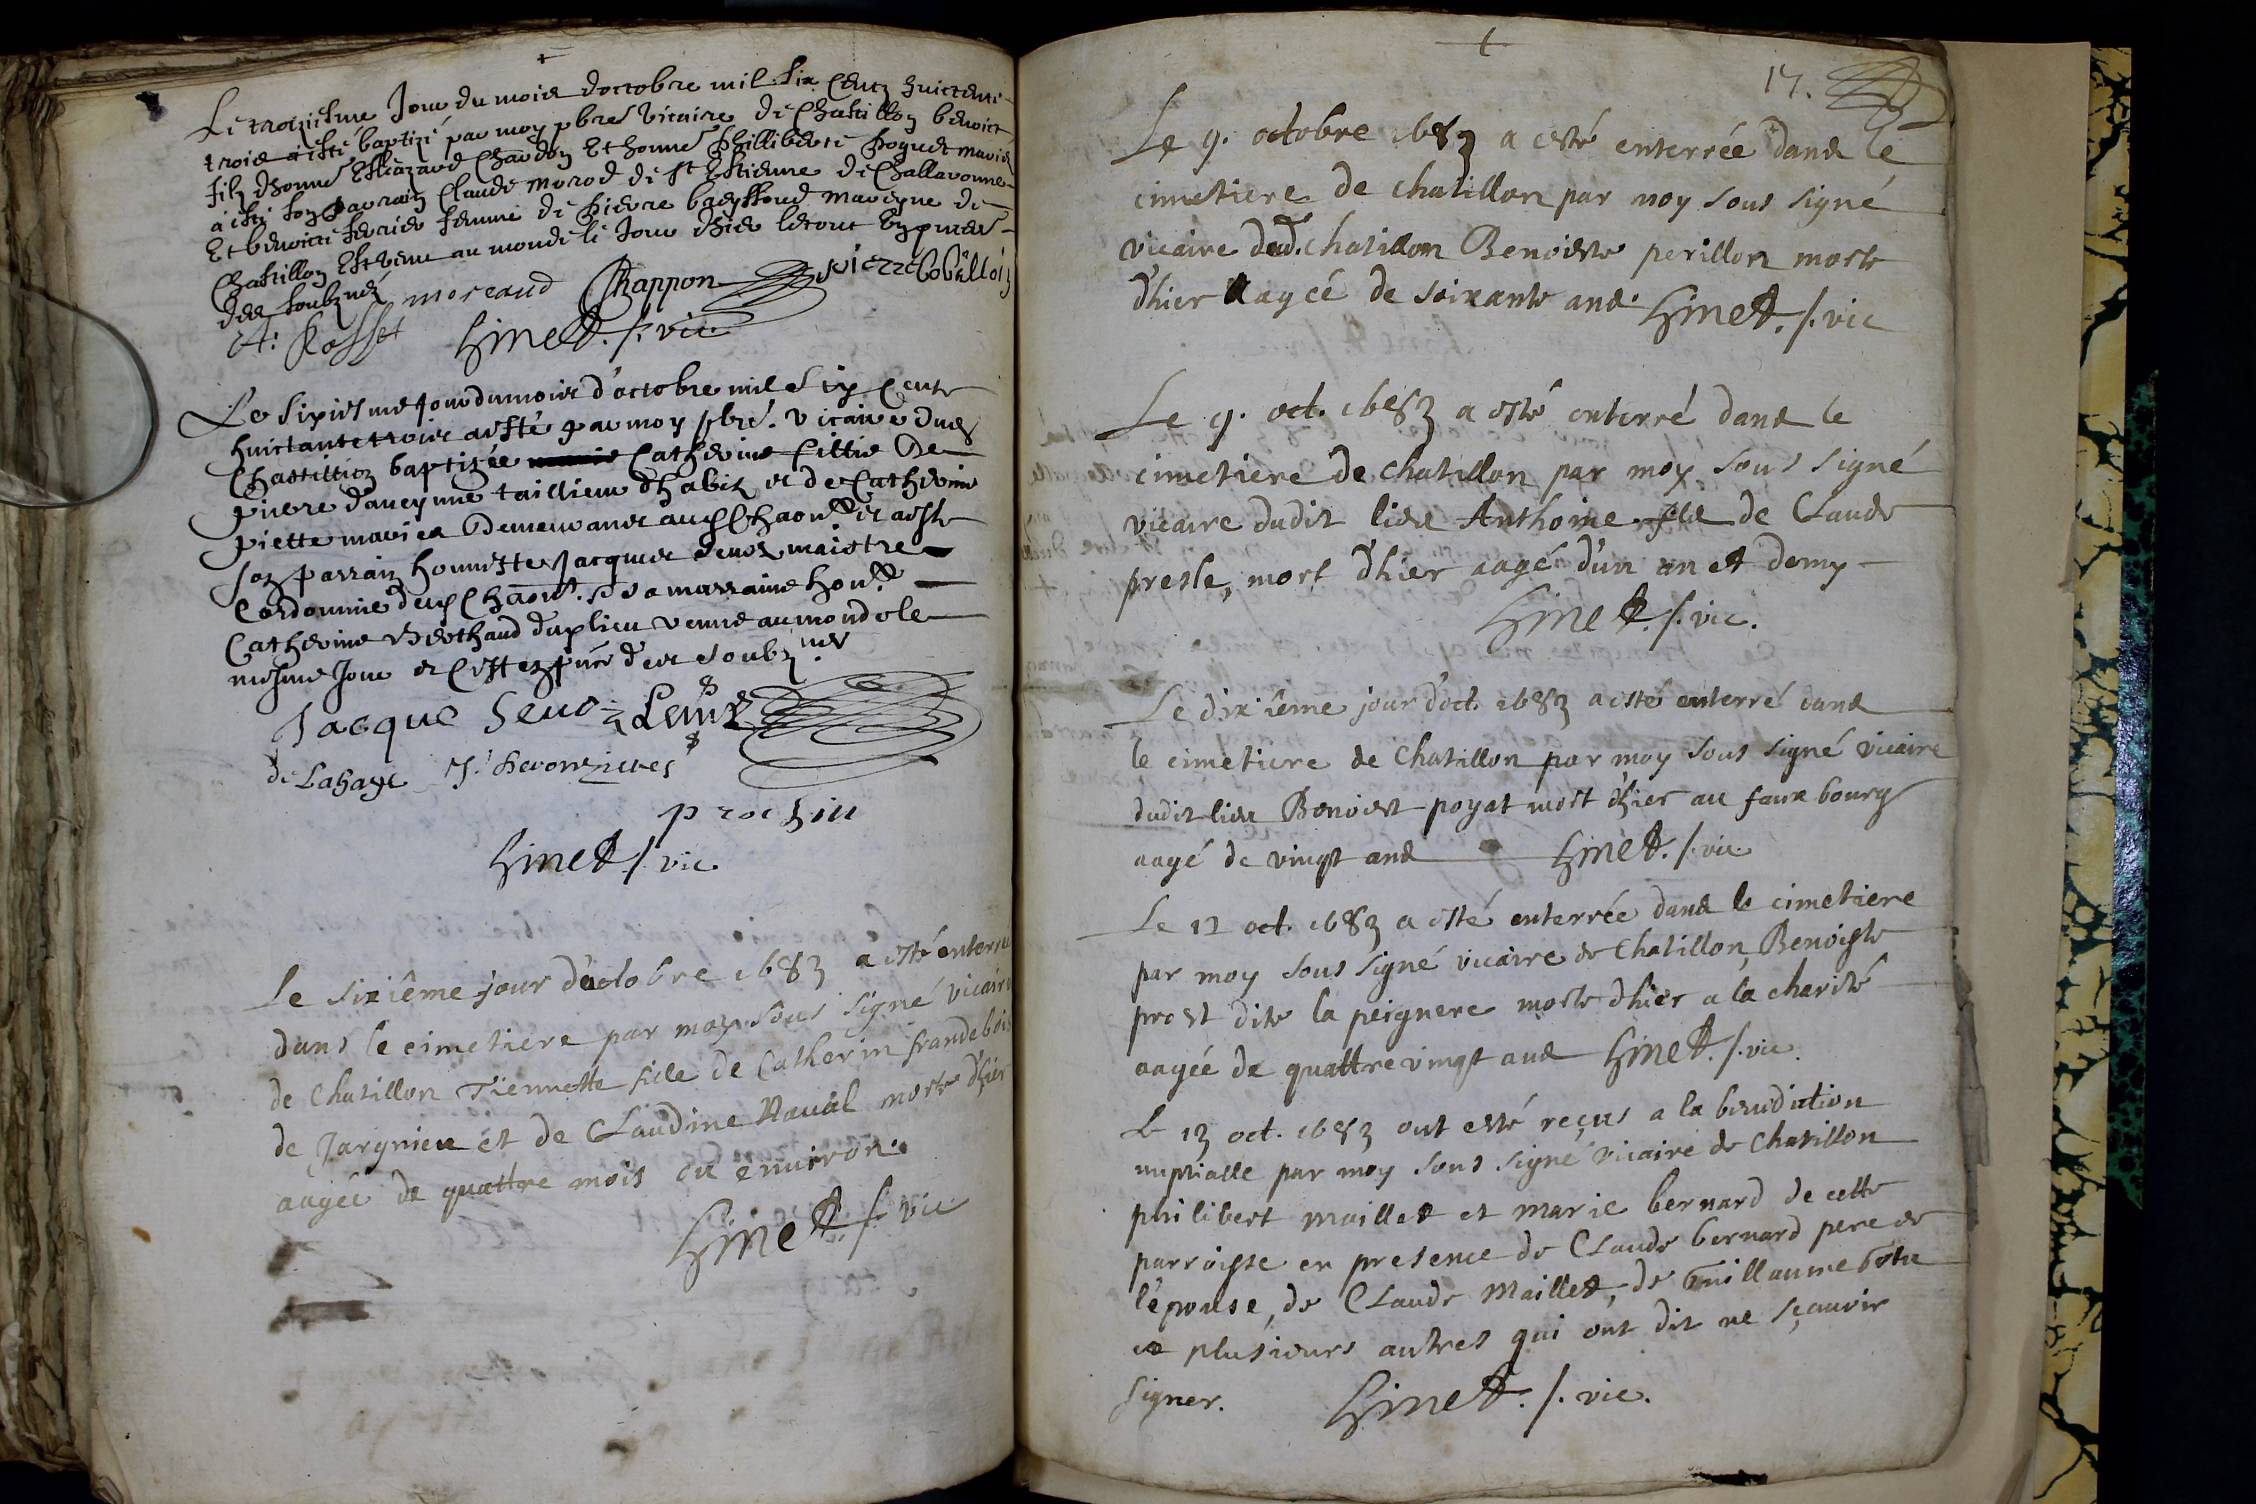 Le troiziesme Jour du mois doctobre mil six Centz huictente
trois a esté baptizé par moy pbre vicaire de Chastillon benoict
filz dhonne Eleazard Chardon Et honne Philliberte Poguet mariés
a esté son parrain Claude morod de st Estienne de Challaronne
Et benoicte ferrier femme de pierre mareyne de
Chastillon Est venu au monde le Jour dhier le tout En pnce
des soubznés moreaud Chappon pierre
A: Rosset Hinet. /. vic
Le sixiesme jour du mois d'octobre mil six Cents
huictante trois a esté par moy pbre. vicaire dud
Chastillion baptizée Catherine fillie De
pierre daveynne taillieur d'habitz et de Catherine
piette mariés Demeurants aud Chaon et a esté
son parrain honneste Jacques maistre
Cordonnie dud Chaon. & sa marraine hon.
Catherine Berthaud dud lieu venue au monde le
mesme Jour et Cest en pnce des soubz nes
Jacque
de Lahaye
prochin
Hinet /. vic
Le sixième jour d'octobre 1683 a esté enterré
dans le cimetiere par moy sous signé vicaire
de Chatillon Tiennette fille de Catherin grandebois
de Jargnieu et de Claudine Raual morte d'hier
aagée de quattre mois ou environ.
Hinet /. vic
17.
Le 9. octobre 1683 a esté enterrée dans le
cimetiere de chatillon par moy sous signé
vicaire dud. chatillon Benoiste perillon morte
d'hier aagée de soixante ans. Hinet. /. vic
Le 9. oct. 1683 a esté enterré dans le
cimetiere de chatillon par moy sous signé
vicaire dudit lieu Anthoine fils de Claude
presle, mort d'hier aagé d'un an et demy
Hinet. /. vic.
Le dixième jour d'oct. 1683 a esté enterré dans
le cimetiere de Chatillon par moy sous signé vicaire
dudit lieu Benoist poyat mort d'hier au faux bourg
aagé de vingt ans Hinet. /. vic
Le 12 oct. 1683 a esté enterrée dans le cimetiere
par moy sous signé vicaire de Chatillon, Benoiste
prost dite la peignere morte d'hier a la charité
aagée de quattrevingt ans Hinet. /. vic.
Le 13 oct. 1683 ont esté reçus a la benediction
nuptialle par moy sous signé vicaire de Chatillon
philibert maillet et marie bernard de cette
parroisse en presence de Claude bernard pere de
l'épouse, de Claude Maillet, de Guillaume
et plusieurs autres qui ont dit ne sçauoir
signer. Hinet. /. vic.